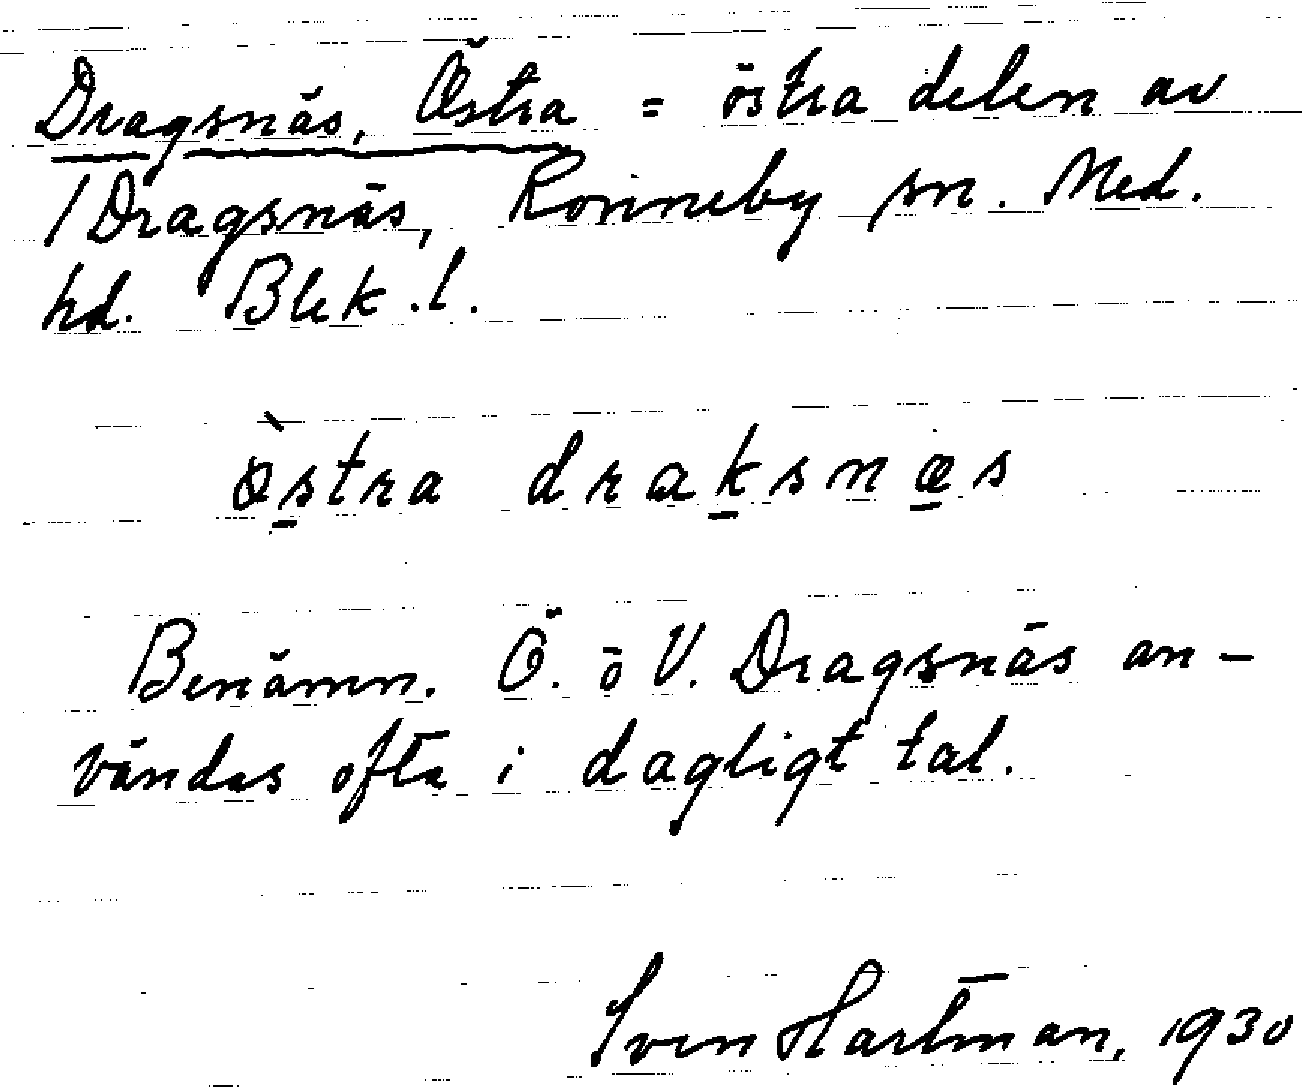 Dragsnäs, Östra = östra delen av
/ Dragsnäs, Ronneby sn. Med.
hd. Blek.l.
östra draksnæs
Benämn. Ö. o V. Dragsnäs an-
vändes ofta i dagligt tal.
Sven Hartman, 1930